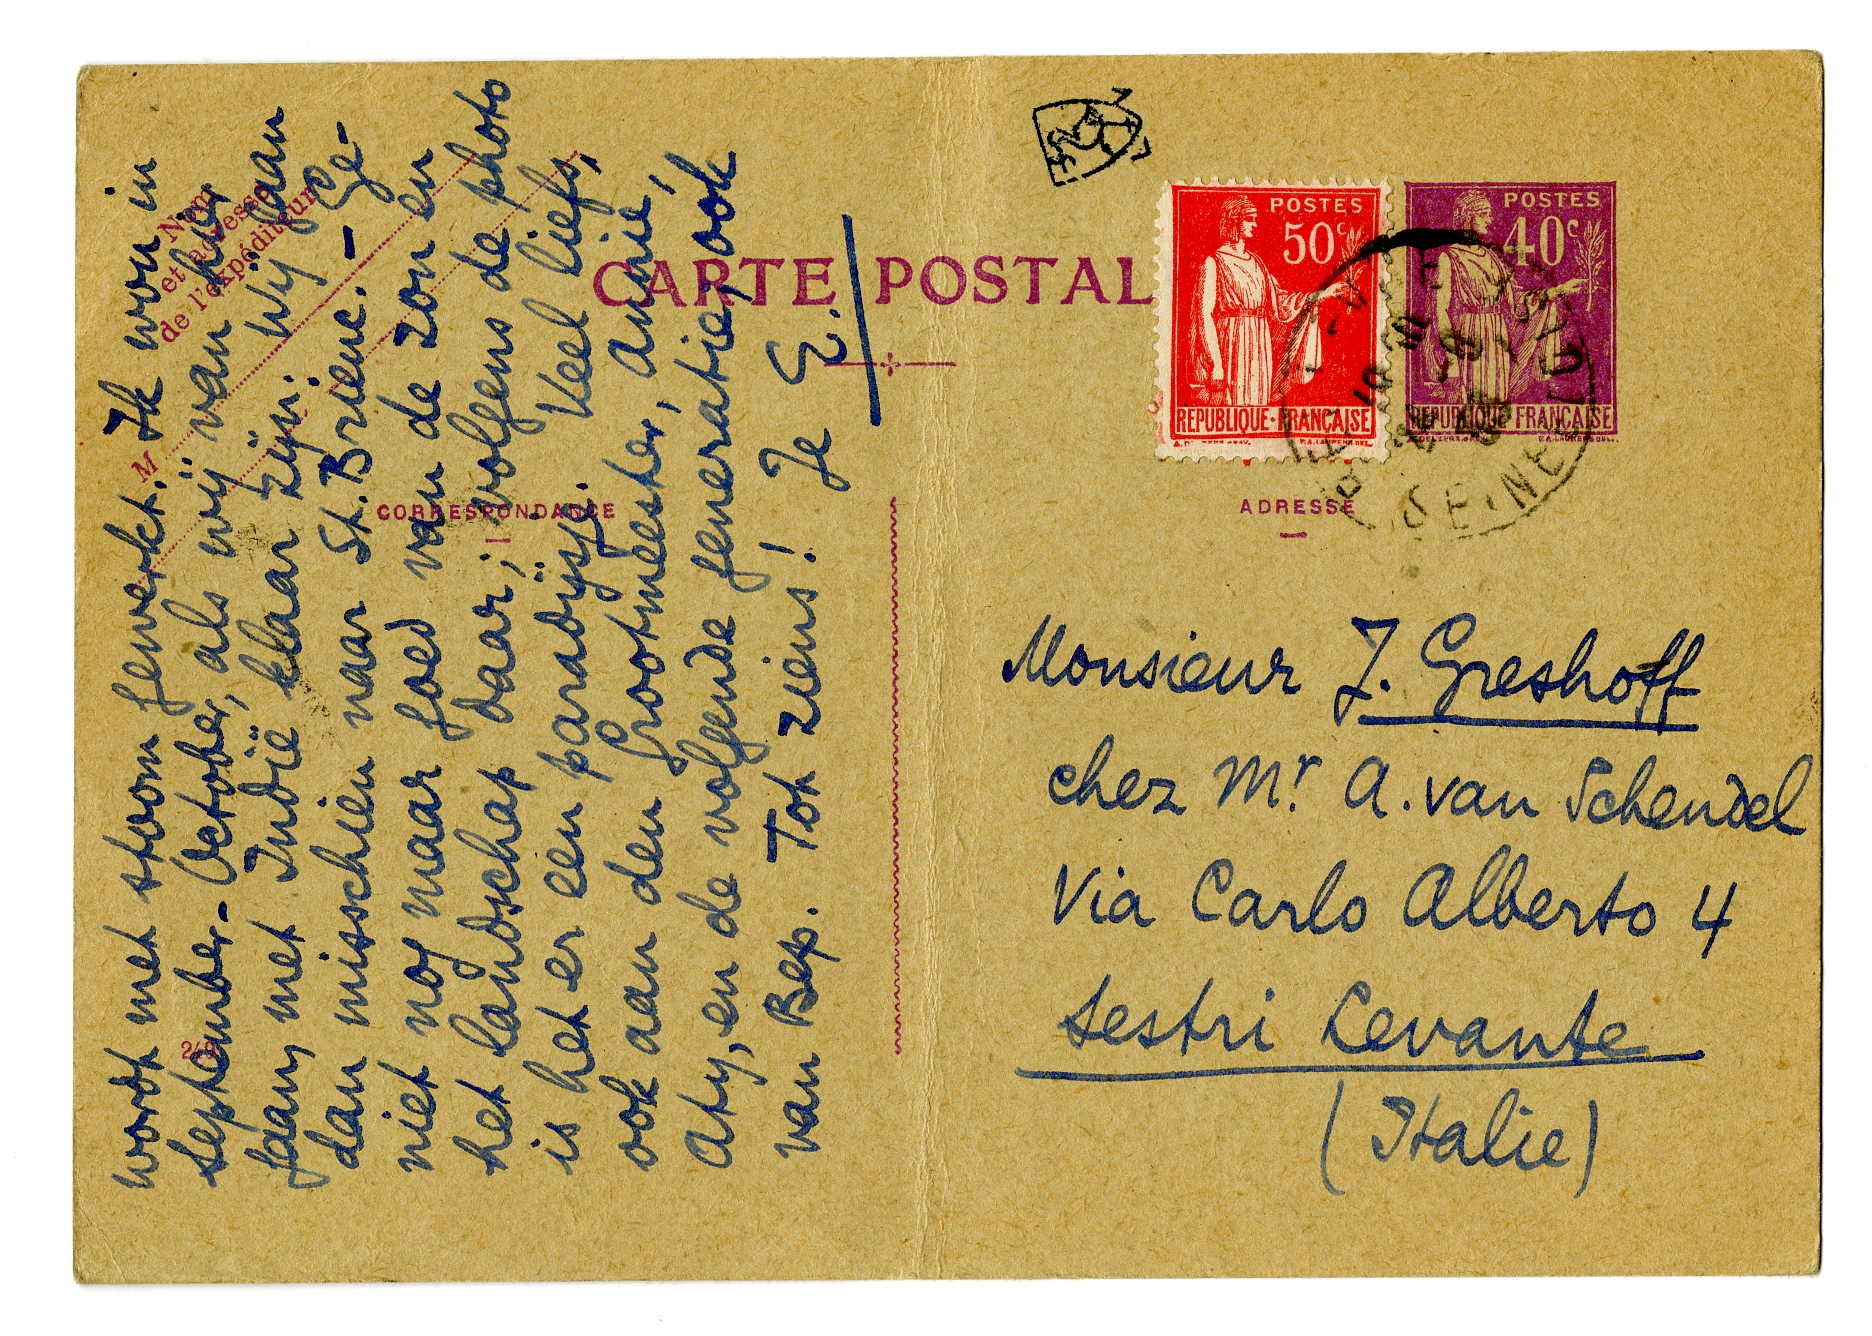 wordt met stoom gewerkt. Ik woon in
September-October, als wij van hier
gaan, met Indië klaar zijn. Wij gaan
dan misschien naar St. Brieuc. – Ge-
niet nog maar goed van de zon en
het landschap daar; volgens de photo
is het er een paradijsje. Veel liefs,
ook aan den grootmeester, Annie,
Aty, en de volgende generatie, ook
van Bep. Tot ziens! Je E.
Nom
et adresse
de l'expéditeur
M
CARTE POSTAL
CORRESPONDANCE
ADRESSE
POSTES
50c
REPUBLIQUE·FRANÇAISE
POSTES
40c
REPUBLIQUE FRANÇAISE
SEINE
Monsieur J. Greshoff
chez Mr A. van Schendel
Via Carlo Alberto 4
Sestri Levante
(Italie)